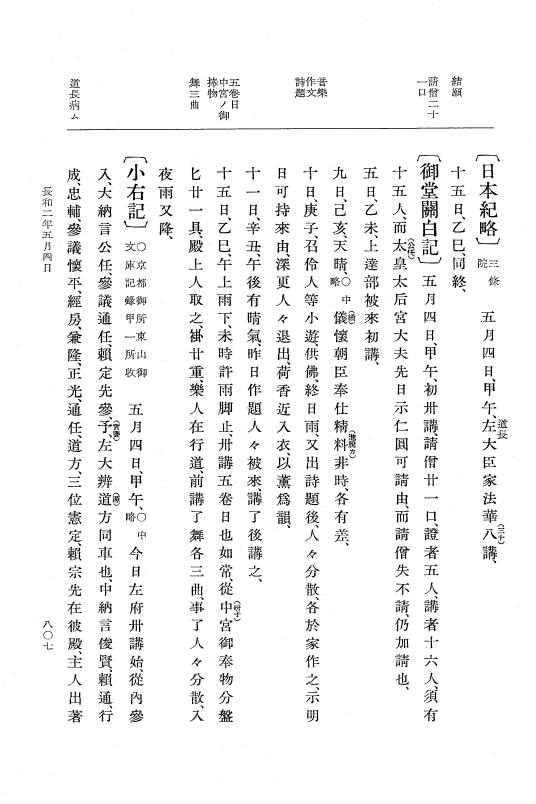 結願
請僧二十
一口
音樂
作文
詩題
五卷日
中宮ノ御
捧物
舞三曲
道長病ム
〔日本紀略〕三條院 五月四日、甲午、左大臣家法華八講、
道長
(三十)
十五日、乙巳、同終、
〔御堂關白記〕五月四日、甲午、初卅講請僧廿一口、證者五人、講者十六人、須有
十五人、而太皇太后宮大夫先日示仁圓可請由、而請僧失不請、仍加請也、
(公任)
五日、乙未、上達部被來初講、
九日、己亥、天晴、○中略儀懷朝臣奉仕精料非時、各有差、
十日庚子、召伶人等小遊、供佛、終日雨、又出詩題後、人々分散、各於家作之、示明
日可持來由、深更人々退出、荷香近入衣、以薰爲韻、
十一日、辛丑、午後有晴氣、昨日作題人々被來、講了後講之、
十五日、乙巳、午上雨下、未時許雨脚止、卅講五卷日也、如常、從中宮御奉物分盤
(妍子)
匕廿一具、殿上人取之、褂廿重、樂人在行道前、講了舞各三曲、事了人々分散、入
夜雨又降、
〔小右記〕○京都御所東山御文庫記錄甲一所收 五月四日、甲午、○中略今日左府卅講始、從內參
入、大納言公任、參議通任、賴定先參、予左大辨道方同車也、中納言俊賢、賴通、行
(實資)
成、忠輔、參議懷平、經房、兼隆、正光、通任、道方、三位憲定、賴宗先在彼殿、主人出著
長和二年五月四日
八〇七